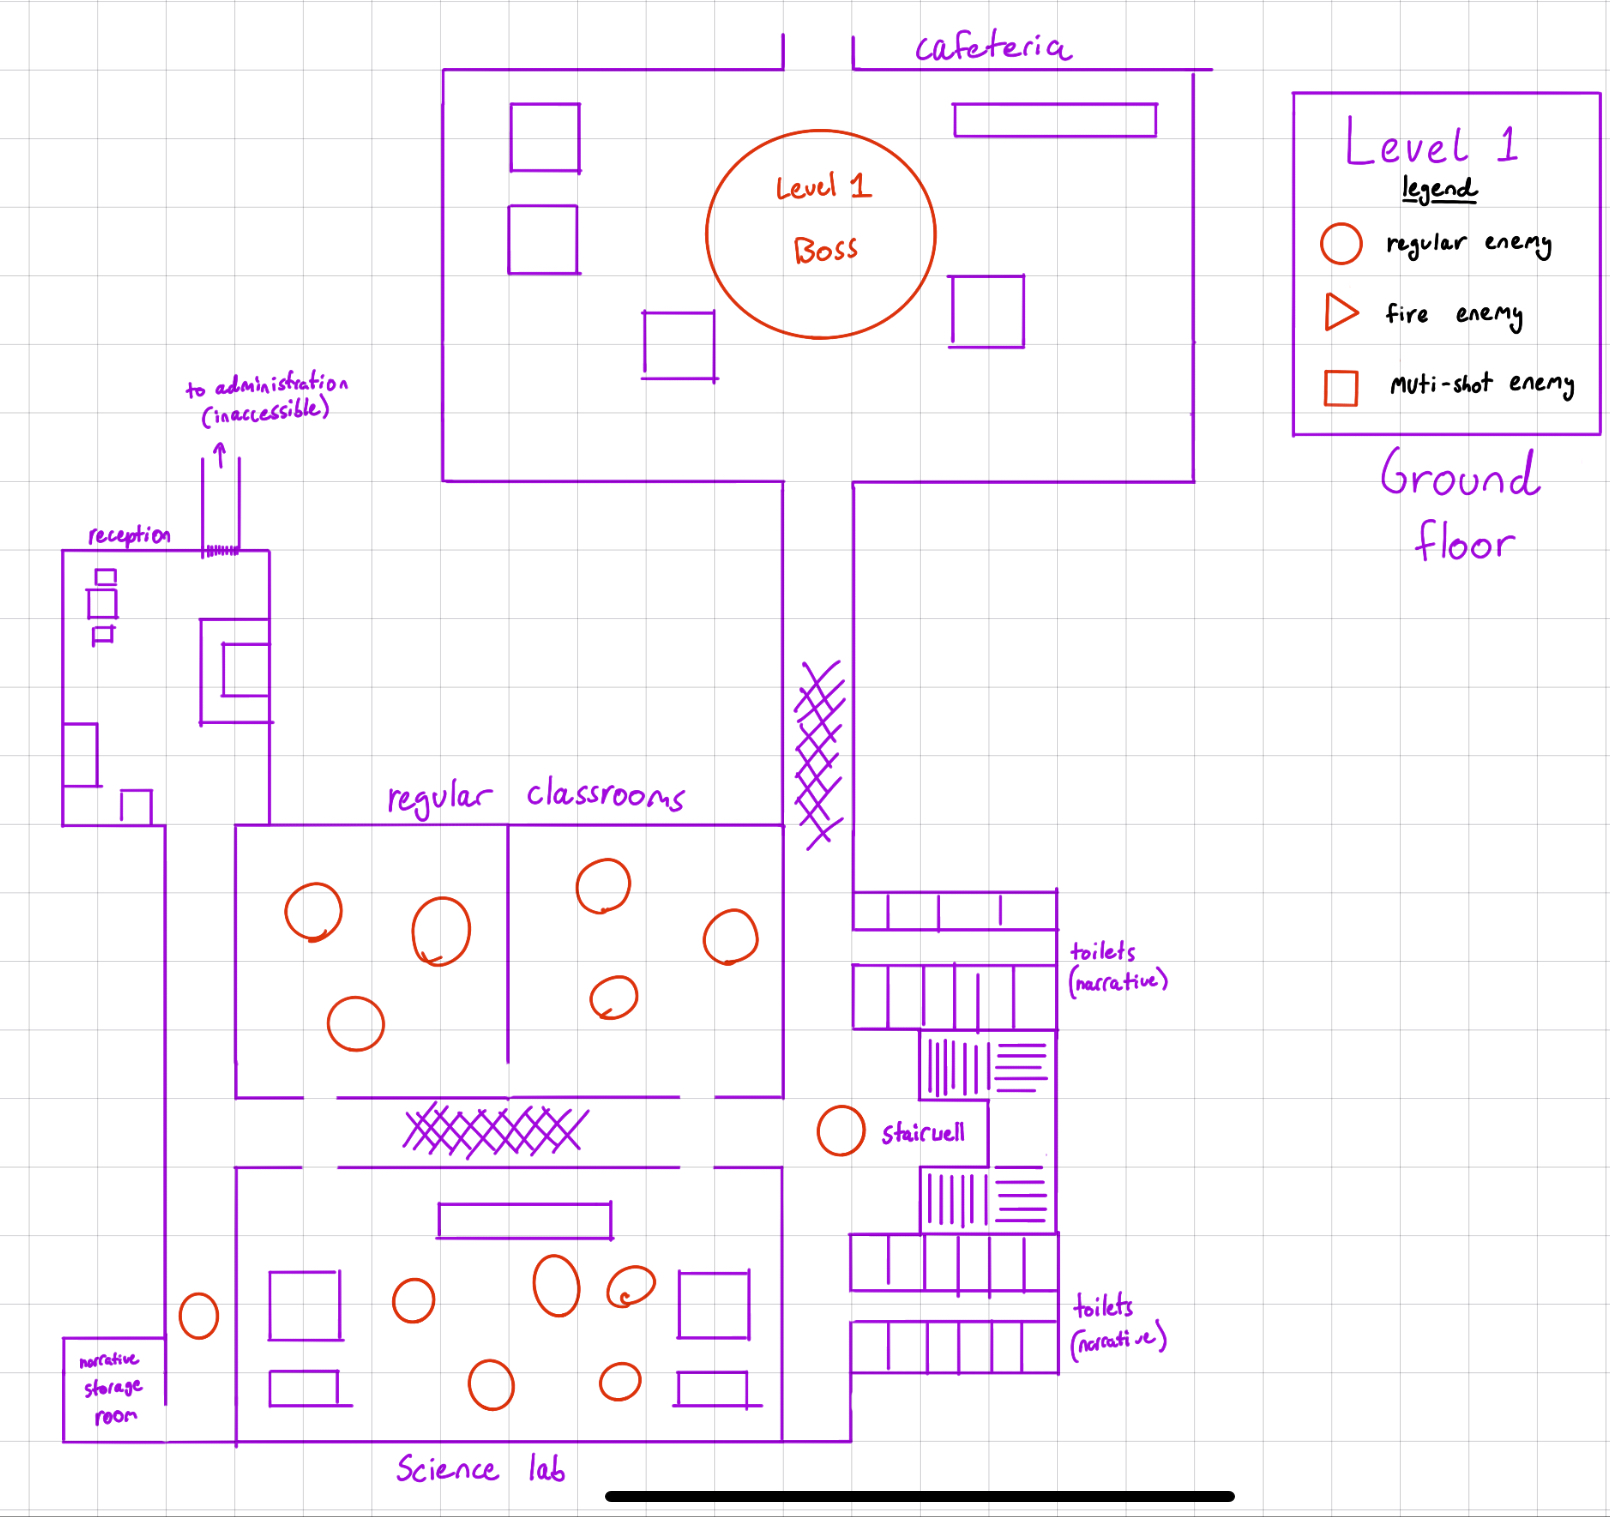 cafeteria
Level 1
Boss
Level 1
legend
regular enemy
fire enemy
muti-shot enemy
Ground
floor
to administration
(inaccessible)
reception
regular classrooms
toilets
(narrative)
stairwell
toilets
(narrative)
narrative
storage
room
Science lab